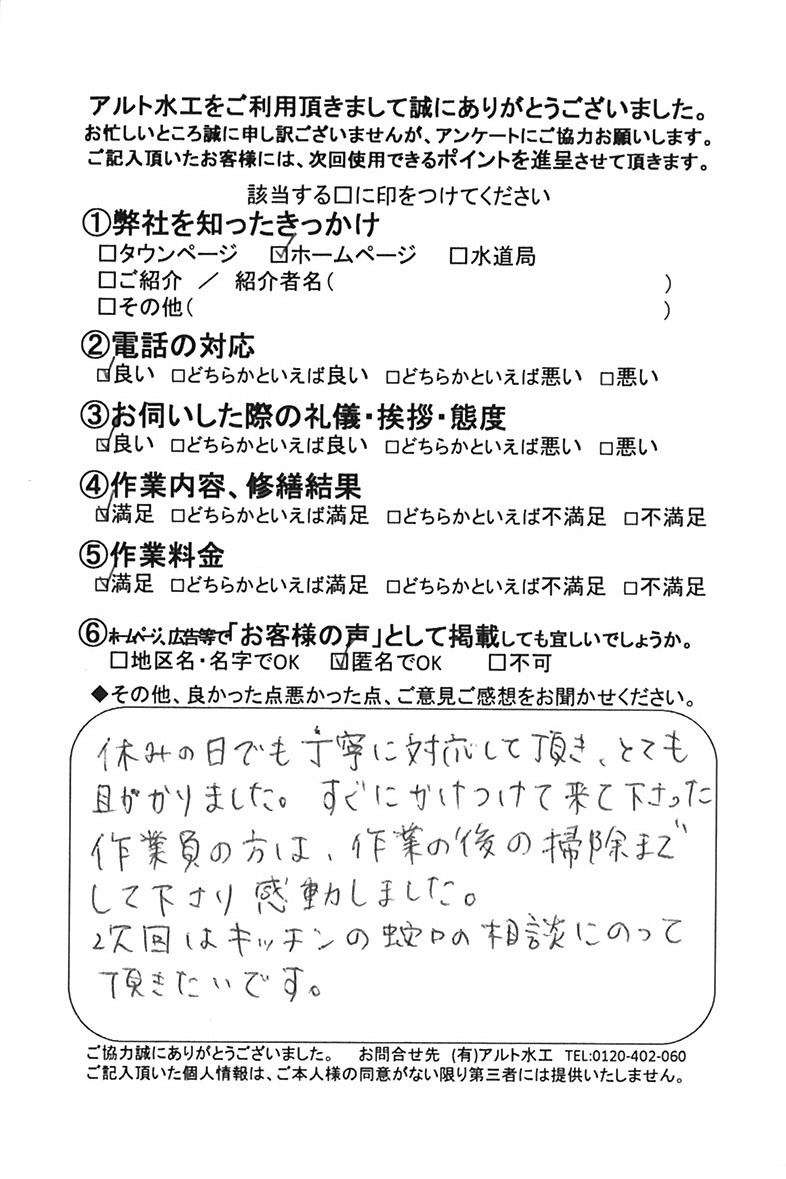 アルト水工をご利用頂きまして誠にありがとうございました。
お忙しいところ誠に申し訳ございませんが、アンケートにご協力お願いします。
ご記入頂いたお客様には、次回使用できるポイントを進呈させて頂きます。
該当する□に印をつけてください
①弊社を知ったきっかけ
□タウンページ ☑ホームページ □水道局
□ご紹介 ／ 紹介者名( )
□その他( )
②電話の対応
☑良い □どちらかといえば良い □どちらかといえば悪い □悪い
③お伺いした際の礼儀・挨拶・態度
☑良い □どちらかといえば良い □どちらかといえば悪い □悪い
④作業内容、修繕結果
☑満足 □どちらかといえば満足 □どちらかといえば不満足 □不満足
⑤作業料金
☑満足 □どちらかといえば満足 □どちらかといえば不満足 □不満足
⑥ホームページ、広告等で「お客様の声」として掲載しても宜しいでしょうか。
□地区名・名字でOK ☑匿名でOK □不可
◆その他、良かった点悪かった点、ご意見ご感想をお聞かせください。
休みの日でも丁寧に対応して頂き、とても
助かりました。すぐにかけつけて来て下さった
作業員の方は、作業の後の掃除まで
して下さり感動しました。
次回はキッチンの蛇口の相談にのって
頂きたいです。
ご協力誠にありがとうございました。 お問合せ先 (有)アルト水工 TEL:0120-402-060
ご記入頂いた個人情報は、ご本人様の同意がない限り第三者には提供いたしません。